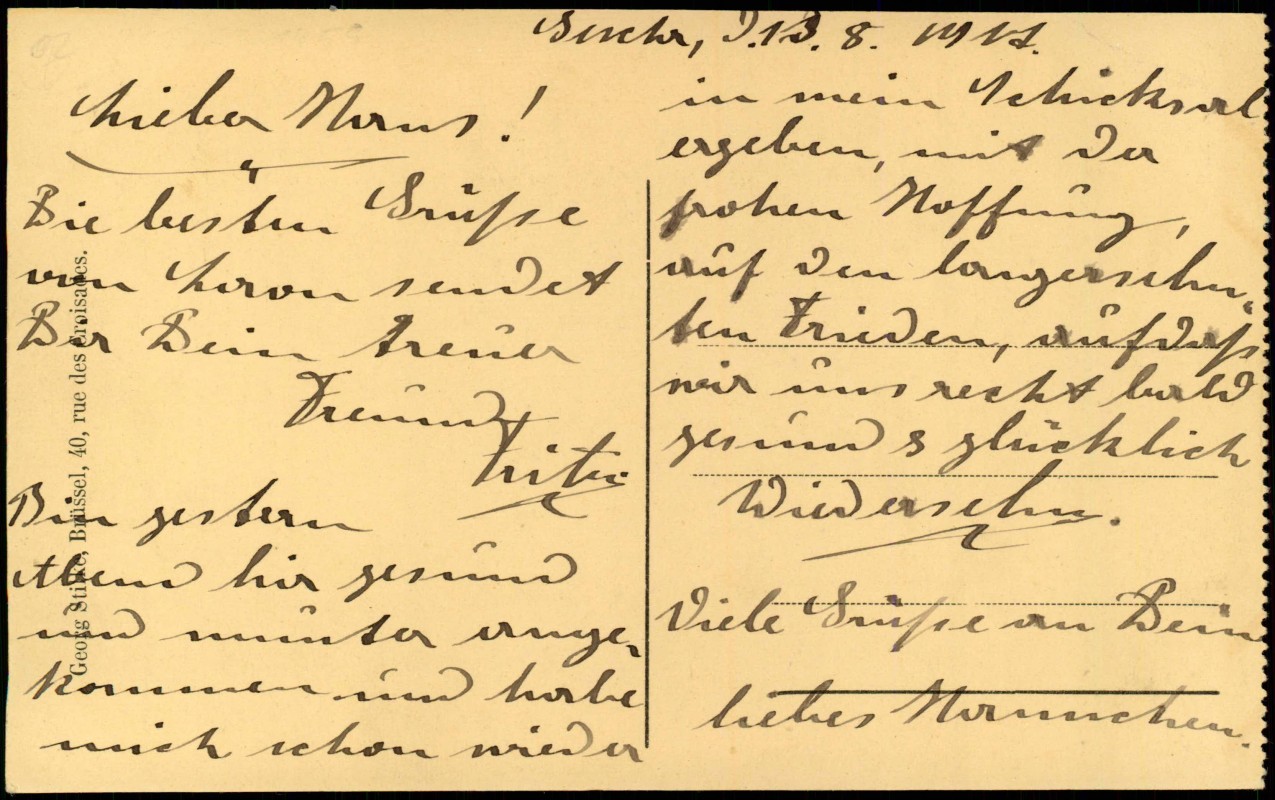 d. 13. 8. 1917.
Lieber Hans!
Die besten Grüße
von Laon sendet
Dir Dein treuer
Freund
Fritz.
Bin gestern
Abend hir gesund
und munter ange-
kommen und habe
mich schon wieder
in mein Schicksal
ergeben, mit der
frohen Hoffnung,
auf den langersehn-
ten Frieden, aufdaß
wir uns recht bald
gesund & glücklich
Wiedersehn.
Viele Grüße an Dein
liebes Hannchen.
Georg Stilke, Brüssel, 40, rue des croisades.